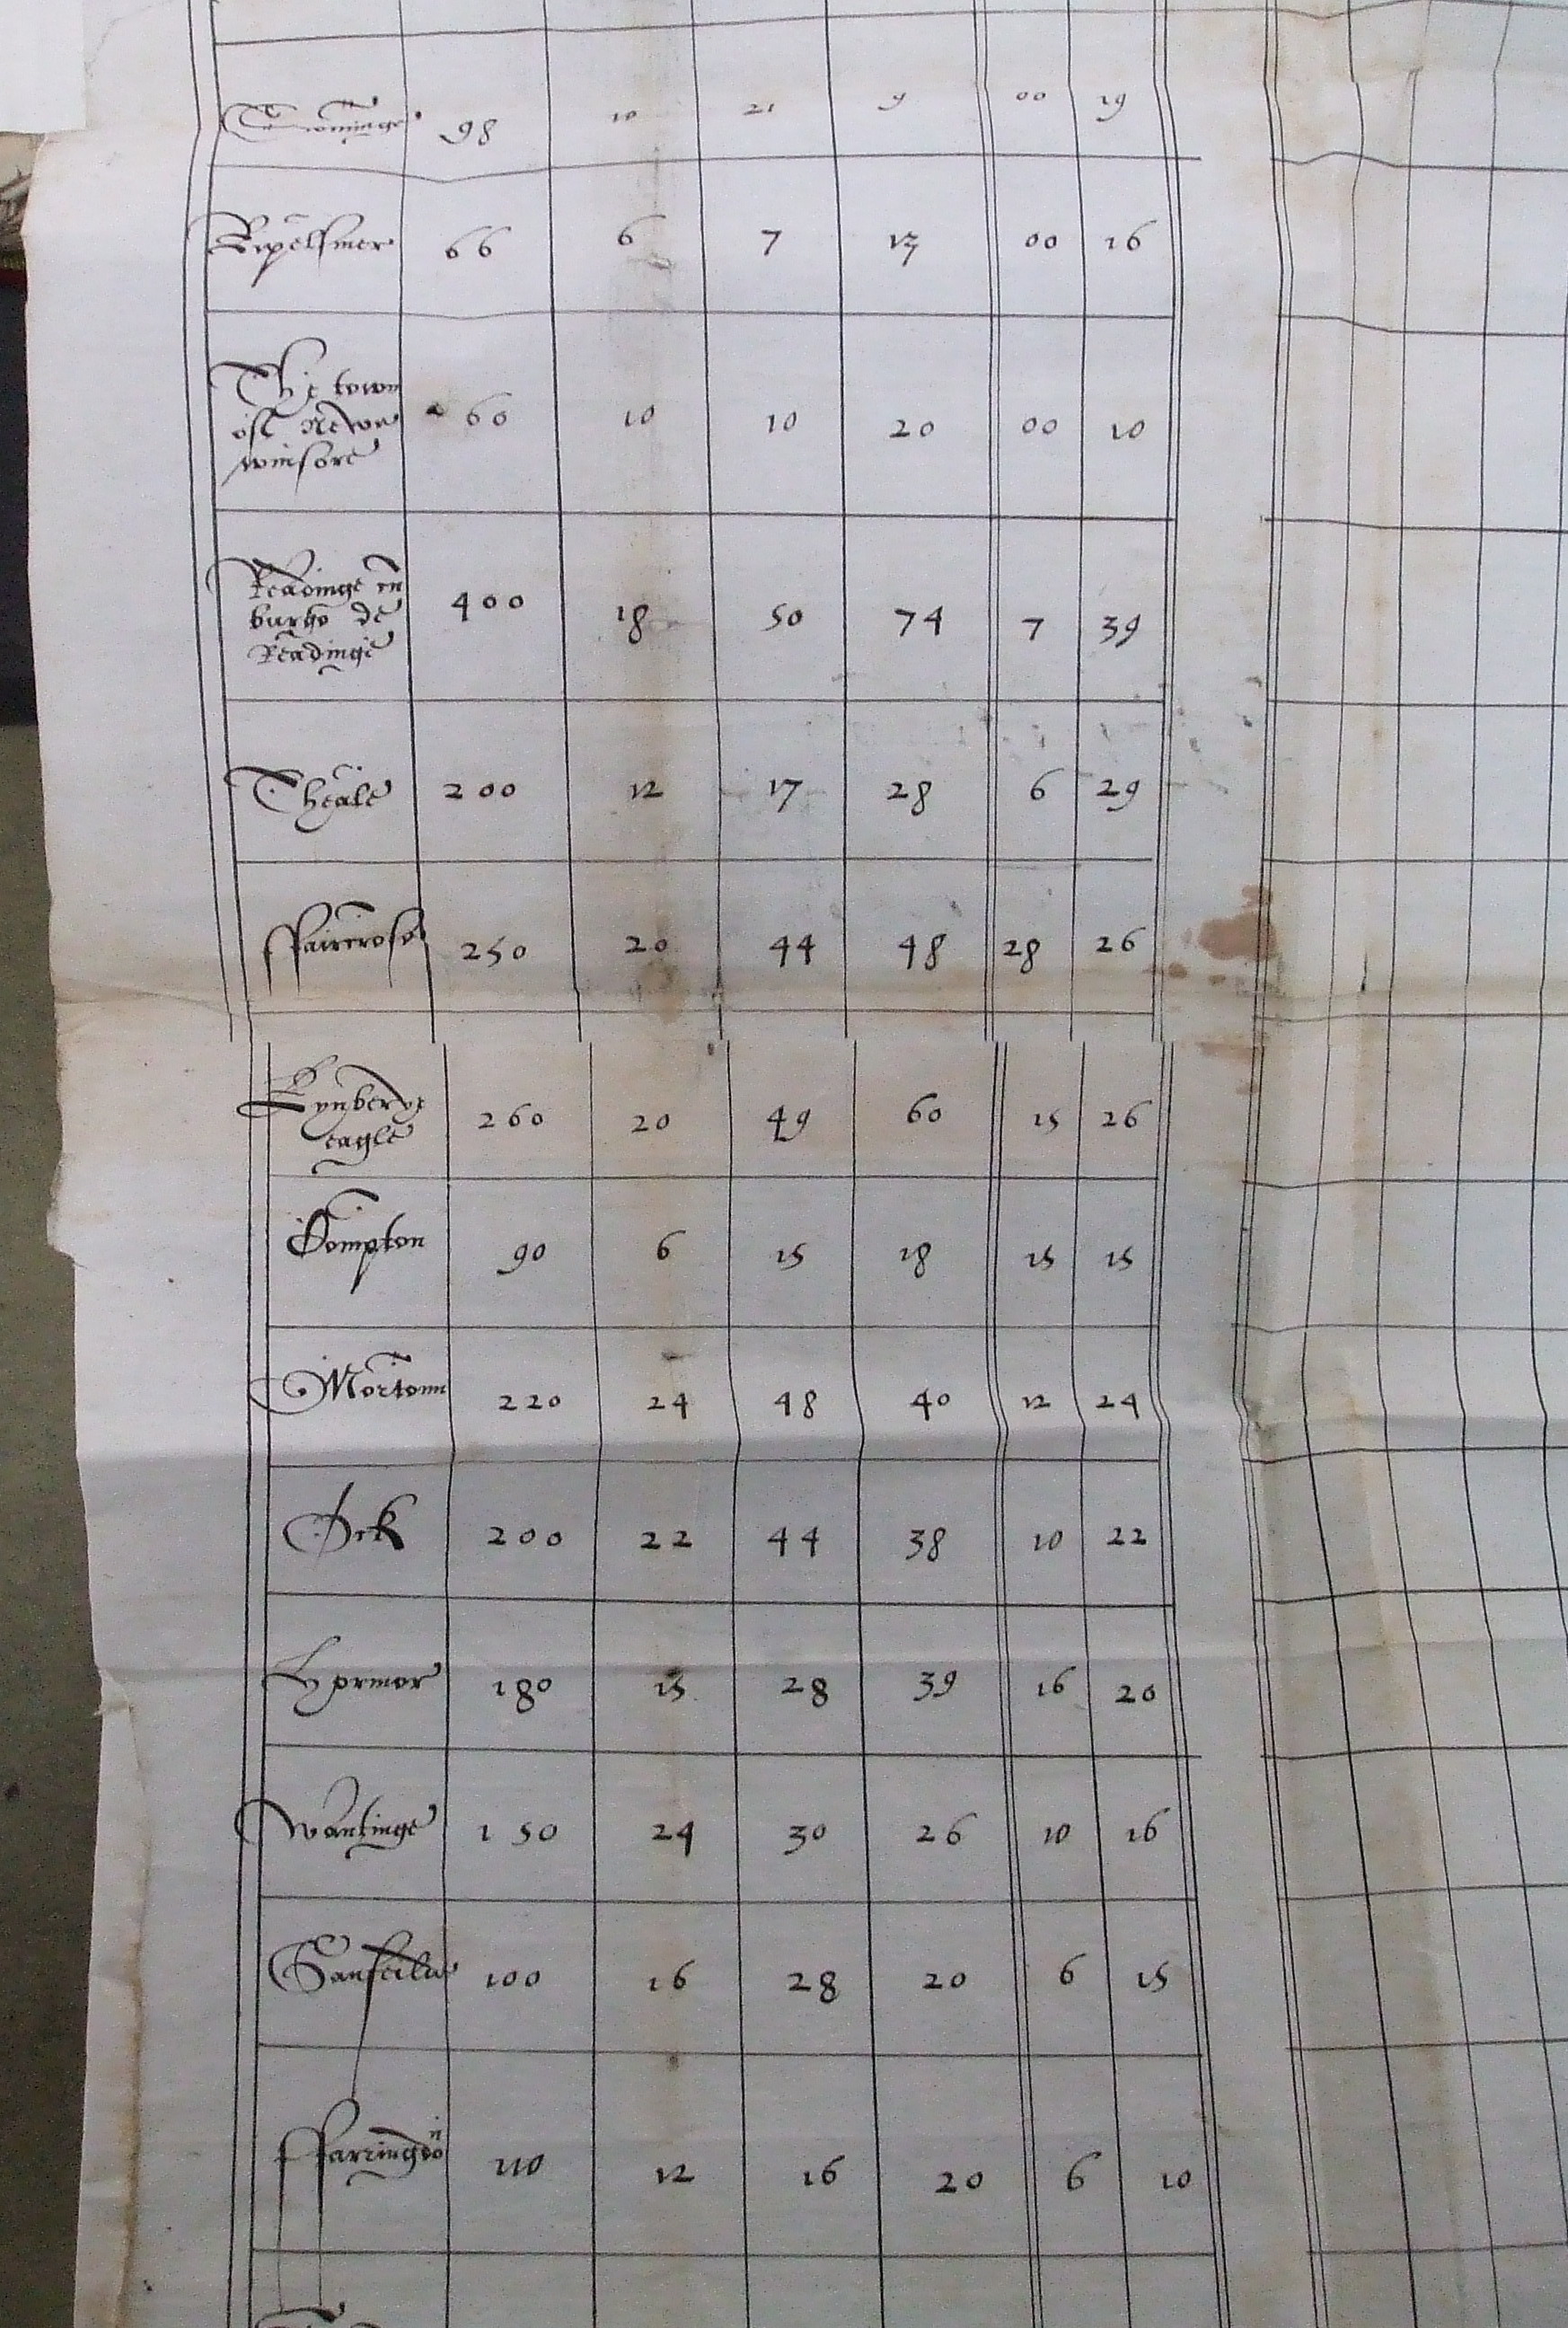 98 10 21 9 00 19
Ripelsmer 66 6 7 13 00 16
The town
of Newe
winsore 60 10 10 20 00 10
Readinge in
burgo de
Readinge 400 18 50 74 7 39
Theale 200 12 17 28 6 29
ffaircrose 250 20 44 48 28 26
Kynberye
eagle 260 20 49 60 15 26
Compton 90 6 15 18 15 15
Mortonn 220 24 48 40 12 24
Ock 200 22 44 38 10 22
Hormer 180 15 28 39 16 20
Wantinge 150 24 30 26 10 16
Ganfeilde 100 16 28 20 6 15
ffarringdon 110 12 16 20 6 10